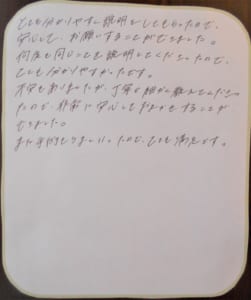 とても分かりやすい説明をしてもらったので、
安心して、お願いすることができました。
何度も同じことを説明してくださったので、
とても分かりやすかったです。
不安もありましたが、丁寧に細かく教えてくださっ
たので、非常に安心しておまかせすることが
できました。
また手続もうまくいったので、とても満足です。